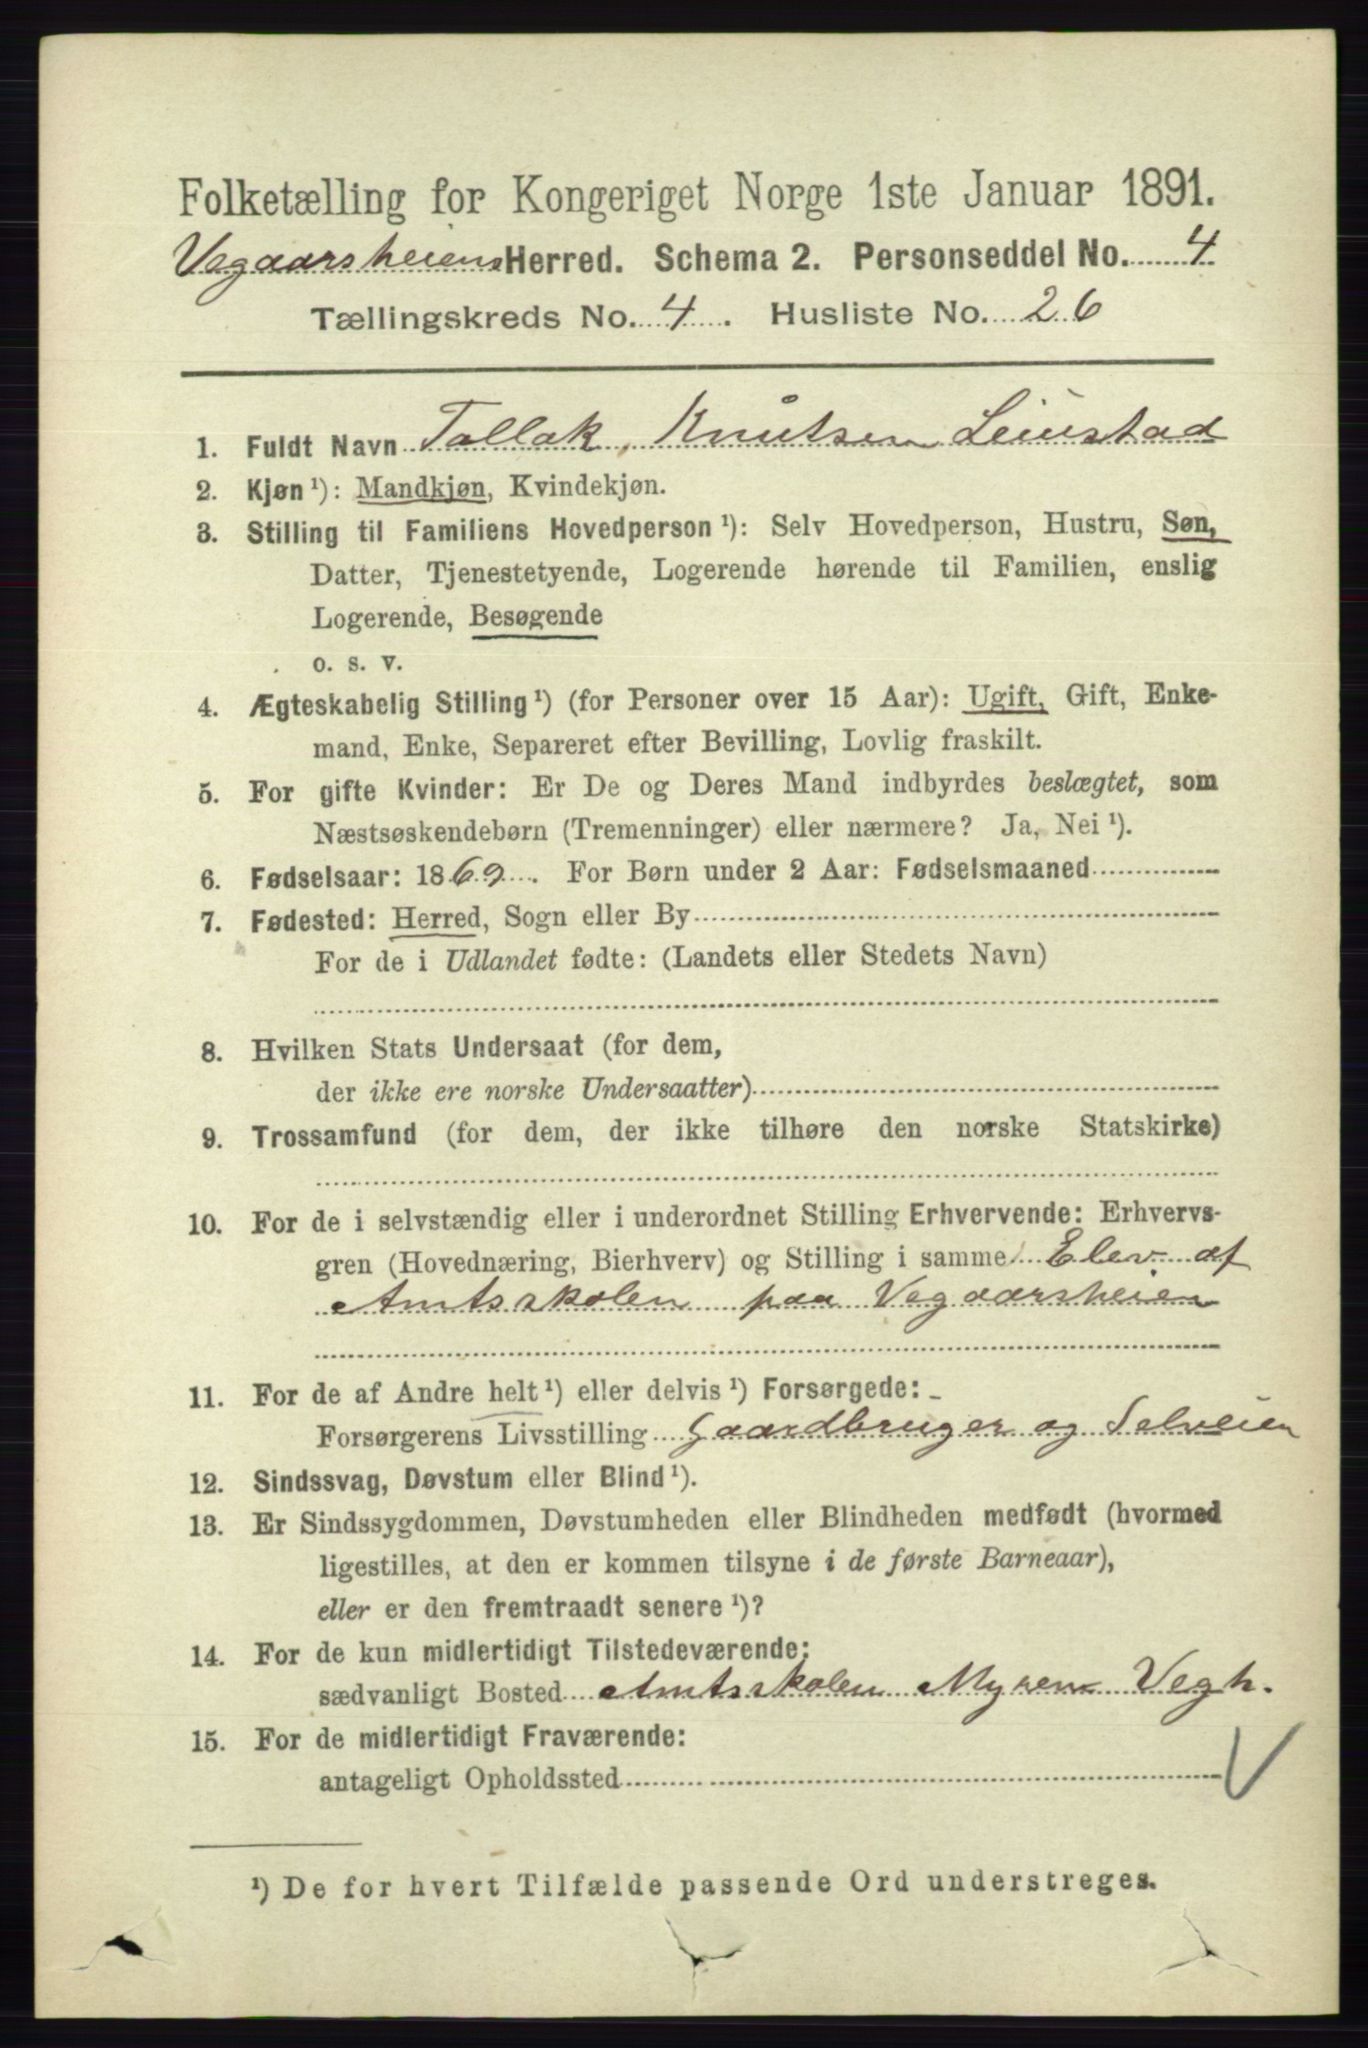 Folketælling for Kongeriget Norge 1ste Januar 1891.
Vegaarsheiens Herred. Schema 2. Personseddel No. 4
Tællingskreds No. 4. Husliste No. 26
1. Fuldt Navn Tallak Knutsen Leiustad
2. Kjøn¹): Mandkjøn, Kvindekjøn.
3. Stilling til Familiens Hovedperson¹): Selv Hovedperson, Hustru, Søn,
Datter, Tjenestetyende, Logerende hørende til Familien, enslig
Logerende, Besøgende
o. s. v.
4. Ægteskabelig Stilling¹) (for Personer over 15 Aar): Ugift, Gift, Enke-
mand, Enke, Separeret efter Bevilling, Lovlig fraskilt.
5. For gifte Kvinder: Er De og Deres Mand indbyrdes beslægtet, som
Næstsøskendebørn (Tremenninger) eller nærmere? Ja, Nei¹).
6. Fødselsaar: 1869. For Børn under 2 Aar: Fødselsmaaned
7. Fødested: Herred, Sogn eller By
For de i Udlandet fødte: (Landets eller Stedets Navn)
8. Hvilken Stats Undersaat (for dem,
der ikke ere norske Undersaatter)
9. Trossamfund (for dem, der ikke tilhøre den norske Statskirke)
10. For de i selvstændig eller i underordnet Stilling Erhvervende: Erhvervs-
gren (Hovednæring, Bierhverv) og Stilling i samme Elev af
Amtsskolen paa Vegaarsheien
11. For de af Andre helt¹) eller delvis¹) Forsørgede:
Forsørgerens Livsstilling Gaardbruger og Selveien
12. Sindssvag, Døvstum eller Blind¹).
13. Er Sindssygdommen, Døvstumheden eller Blindheden medfødt (hvormed
ligestilles, at den er kommen tilsyne i de første Barneaar),
eller er den fremtraadt senere¹)?
14. For de kun midlertidigt Tilstedeværende:
sædvanligt Bosted Amtsskolen Myren Vegh.
15. For de midlertidigt Fraværende:
antageligt Opholdssted
¹) De for hvert Tilfælde passende Ord understreges.